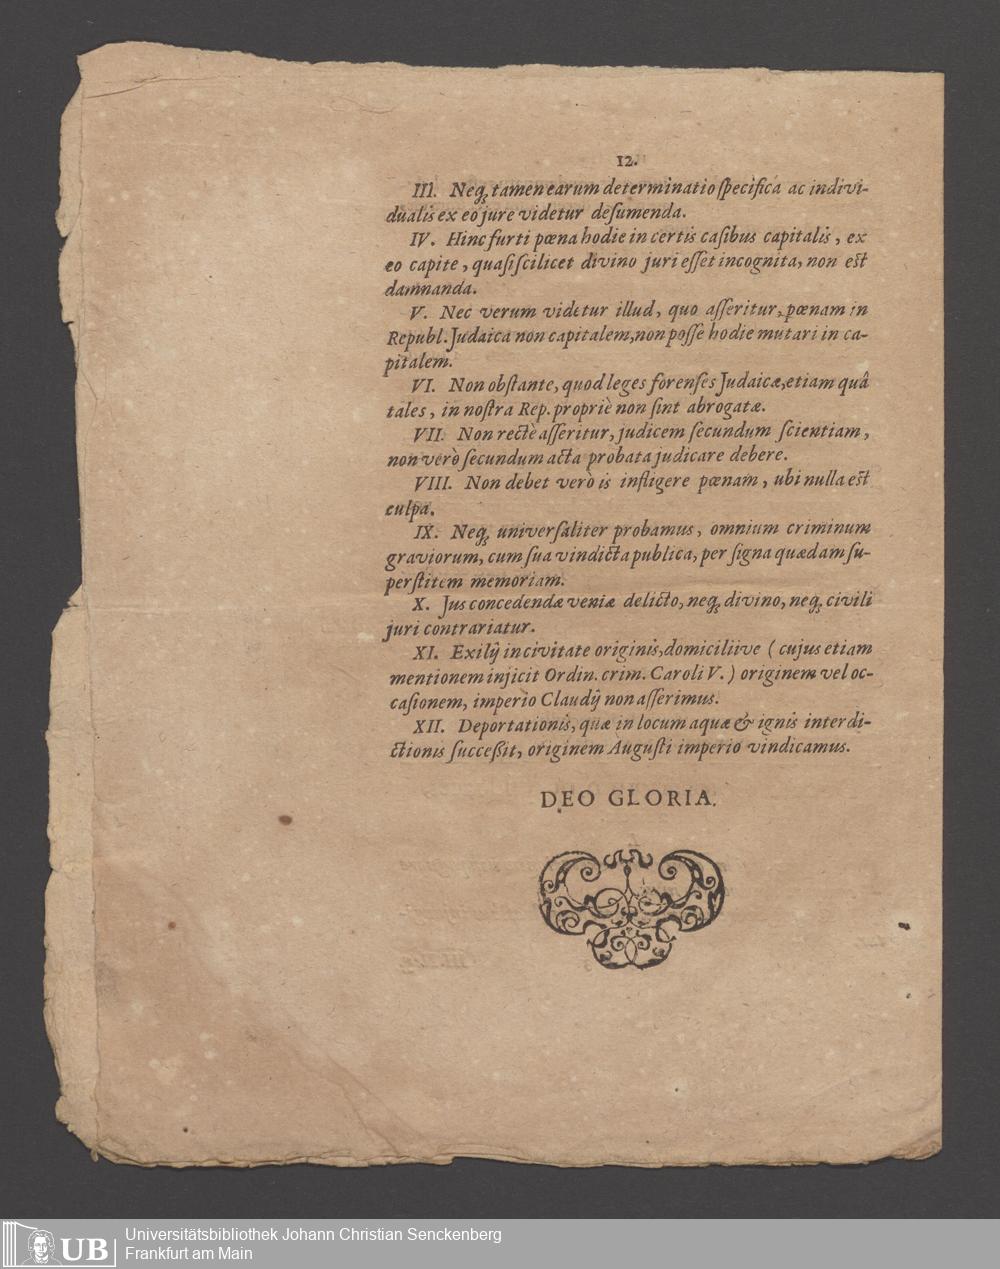 12.
III. Neq; tamen earum determinatio ſpecifica ac indivi-
dualis ex eo jure videtur deſumenda.
IV. Hinc furti pœna hodie in certis caſibus capitalis, ex
eo capite, quaſi ſcilicet divino juri eſſet incognita, non eſt
damnanda.
V. Nec verum videtur illud, quo aſſeritur, pœnam in
Republ. Judaica non capitalem, non poſſe hodie mutari in ca-
pitalem.
VI. Non obſtante, quod leges forenſes Judaicæ, etiam quâ
tales, in noſtra Rep. propriè non ſint abrogatæ.
VII. Non rectè aſſeritur, judicem ſecundum ſcientiam,
non verò ſecundum acta probata judicare debere.
VIII. Non debet verò is infligere pœnam, ubi nulla eſt
culpa.
IX. Neq; univerſaliter probamus, omnium criminum
graviorum, cum ſua vindicta publica, per ſigna quædam ſu-
perſtitem memoriam.
X. Jus concedendæ veniæ delicto, neq; divino, neq; civili
juri contrariatur.
XI. Exilij in civitate originis, domiciliive ( cujus etiam
mentionem injicit Ordin. crim. Caroli V. ) originem vel oc-
caſionem, imperio Claudij non aſſerimus.
XII. Deportationis, quæ in locum aquæ & ignis interdi-
ctionis ſucceßit, originem Auguſti imperio vindicamus.
DEO GLORIA.
UB
Universitätsbibliothek Johann Christian Senckenberg
Frankfurt am Main